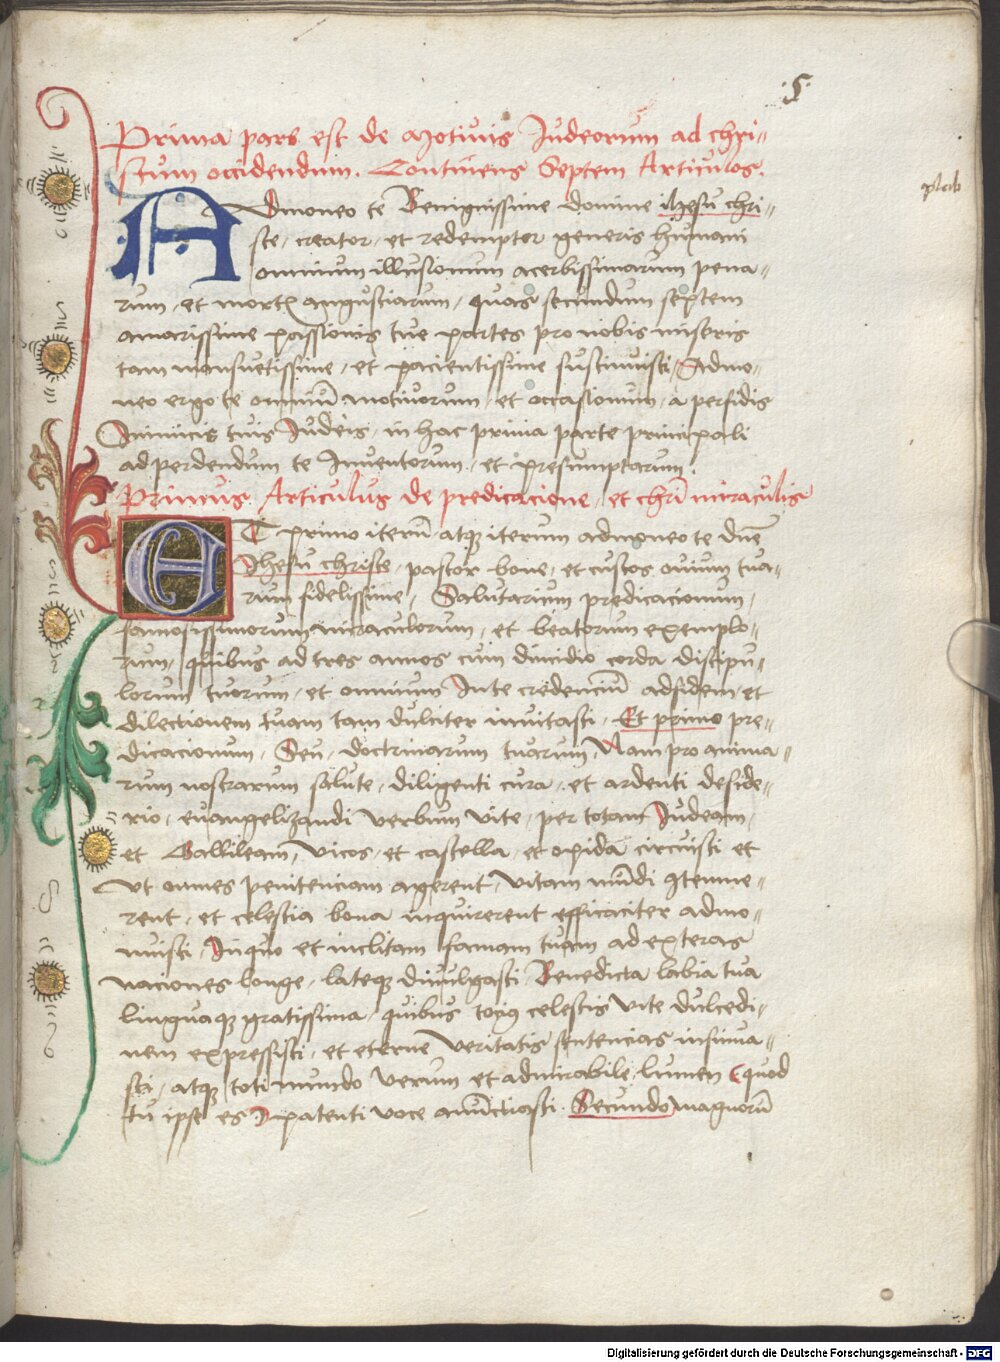 .5.
Prima pars est de Motiuis Iudeorum ad chri-
stum occidendum. Continens Septem Articulos.
Admoneo te Benignissime domine ihesu chri-
ste, creator, et redemptor generis humani
omnium illusionum acerbissimarum pena-
rum, et mort[is] angustiarum, quas secundum septem
amarissime passionis tue partes pro nobis miseris
tam mansuetissime, et pacientissime sustinuisti, Admo-
neo ergo te omniū motiuorum, et occasionum, a perfidis
Inimicis tuis Iudeis, in hac prima parte principali
ad perdendum te Inuentorum, et presumptarum.
Primus Articulus de predicacione, et chrī miraculis
ET primo iterū atq̄ iterum admoneo te dn̄e
Ihesu christe, pastor bone, et custos ouium tua-
rum fidelissime, Salutarium predicacionum,
famosissimorum miraculorum, et beatorum exemplo-
rum, quibus ad tres annos cum dimidio corda discipu-
lorum tuorum, et omnium In te credenciū ad fidem, et
dilectionem tuam tam dulciter inuitasti, Et primo pre-
dicacionum, Seu, doctrinarum tuarum, Nam pro anima-
rum nostrarum salute, diligenti cura, et ardenti deside-
rio, euangelizandi verbum vite, per totam Iudeam,
et Gallileam, vicos, et castella, et opida circuisti et
vt omnes penitenciam agerent, vitam mūdi ꝯtemne-
rent, et celestia bona inquirerent efficaciter admo-
nuisti, In quo et inclitam famam tuam ad exteras
naciones longe, lateq̄ diuulgasti, Benedicta labia tua
linguaq̄ gratissima, quibus toci9 celestis vite dulcedi-
nem expressisti, et eterne veritatis sentencias insinua-
sti, atq̄ toti mundo verum et admirabile lumen (quod
tu ipse es) patenti voce anūctiasti. Secundo magnorū
Digitalisierung gefördert durch die Deutsche Forschungsgemeinschaft - DFG